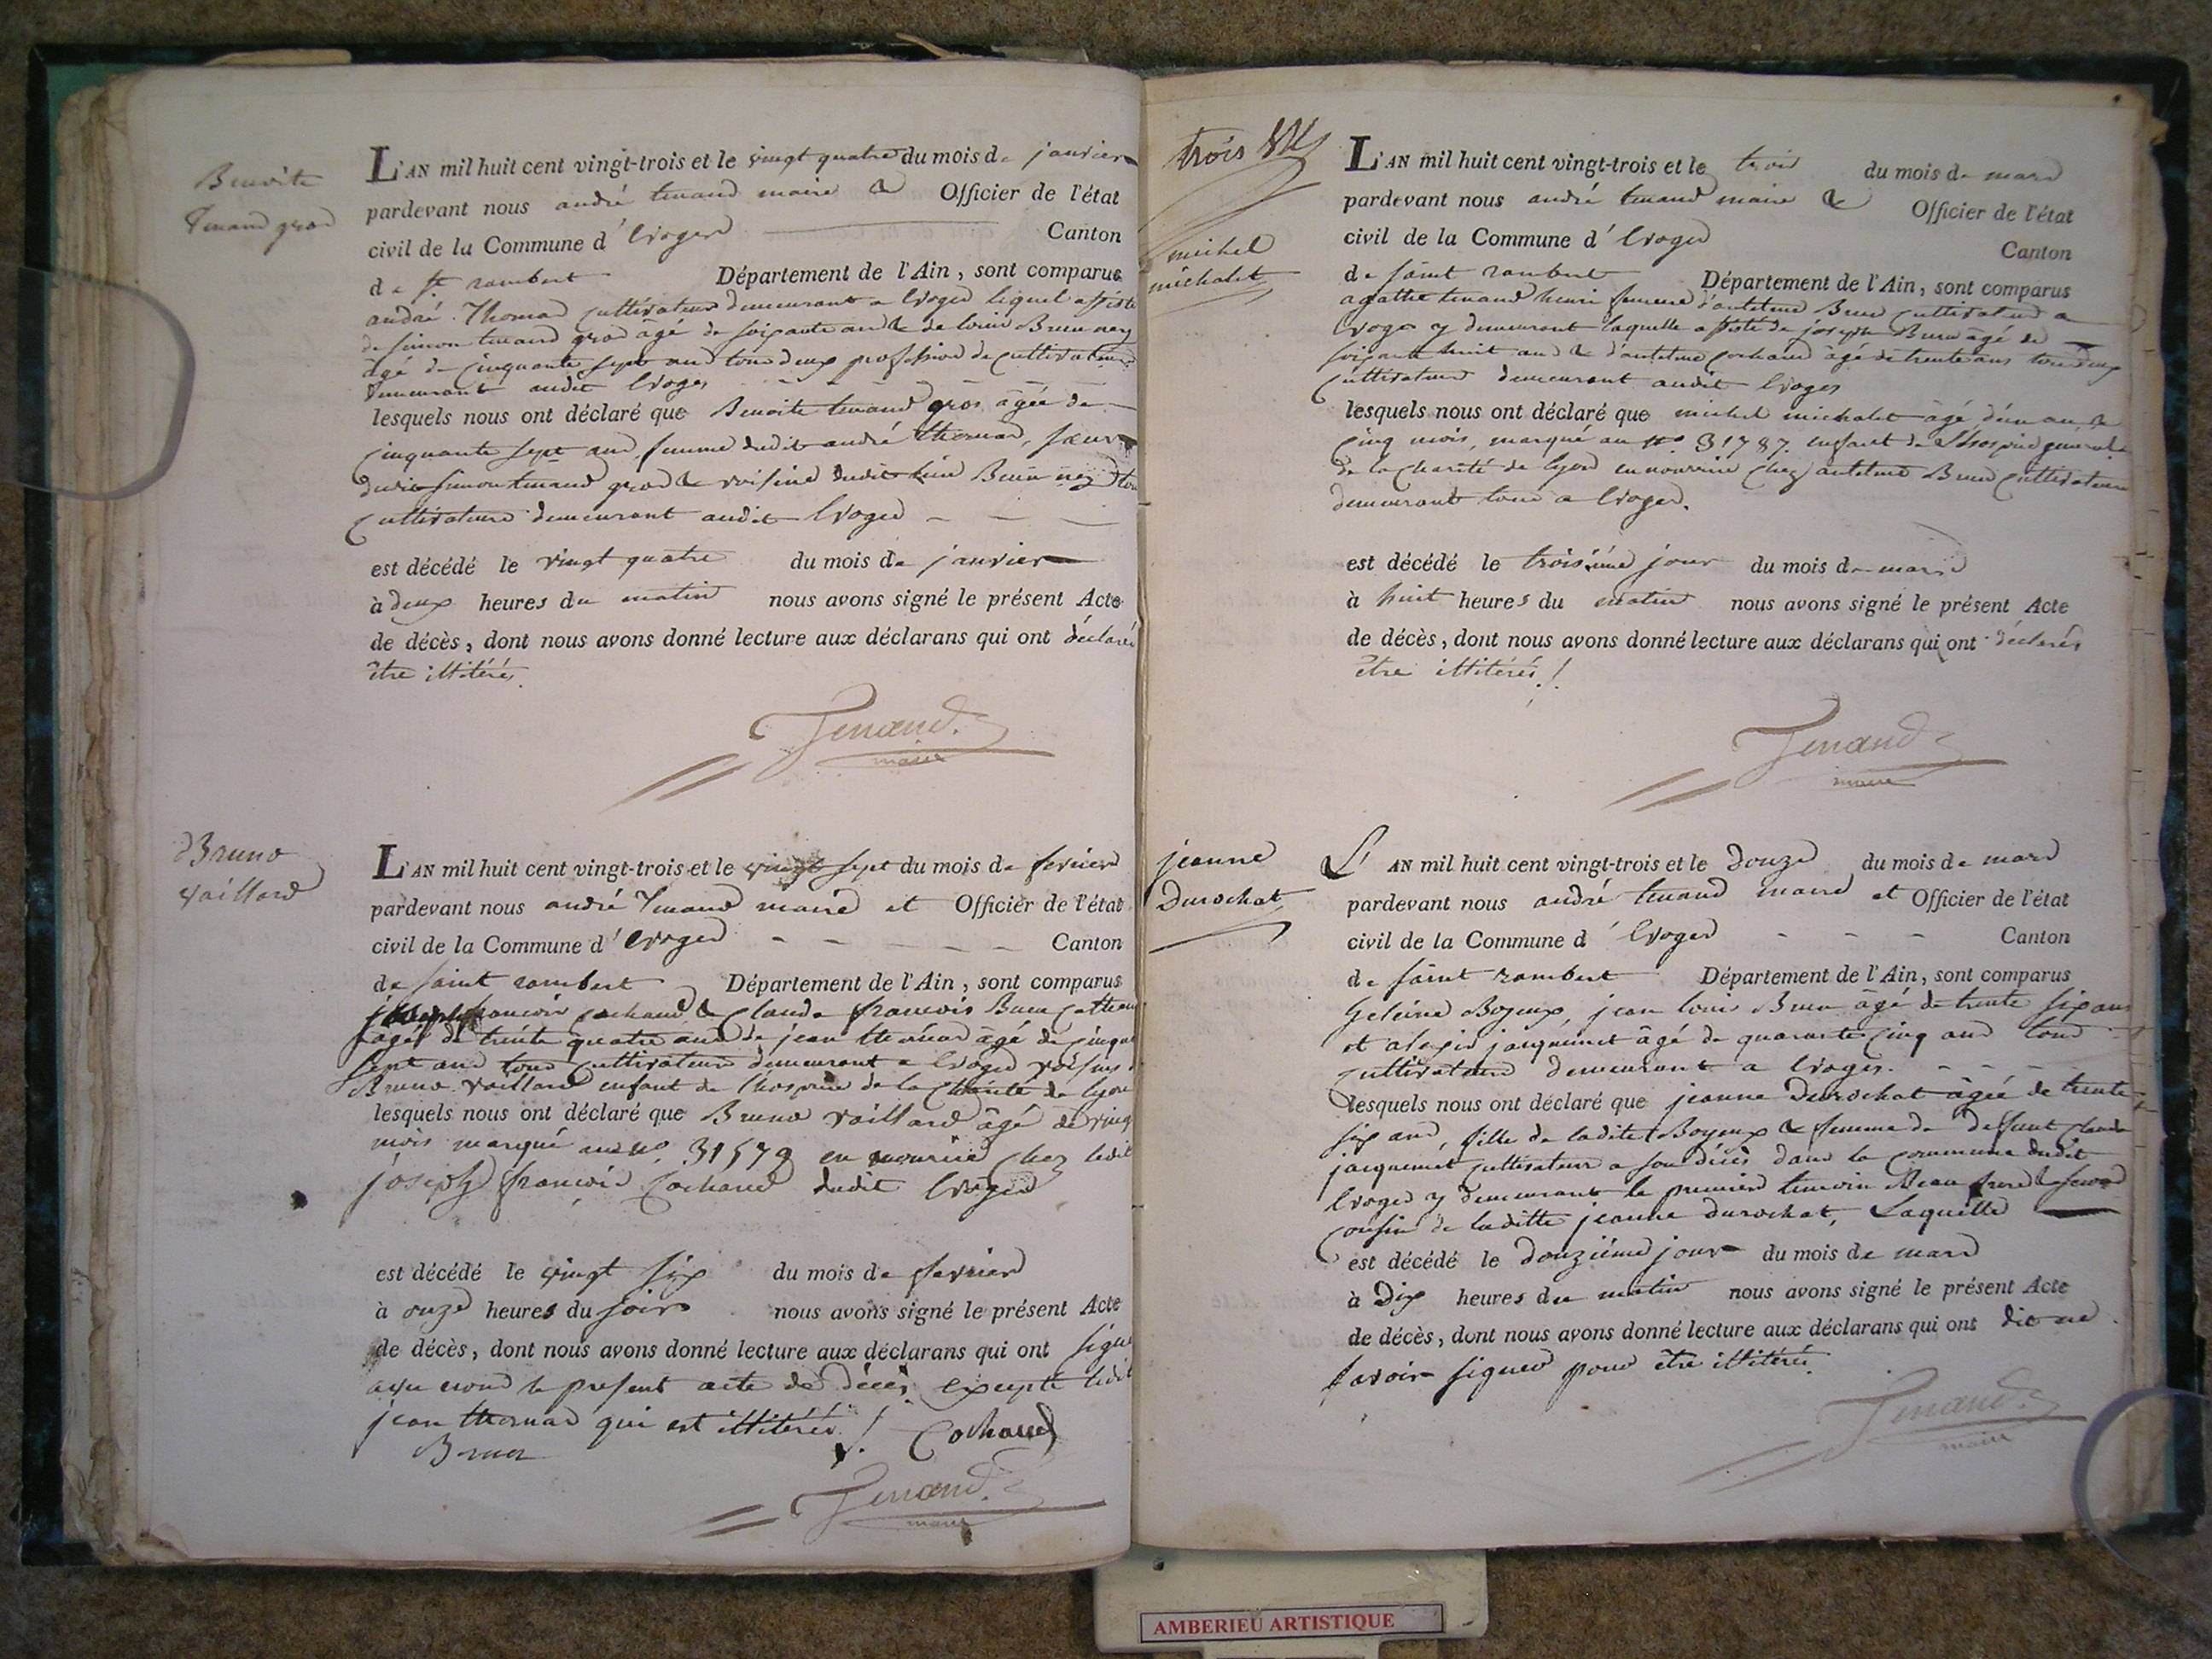 Benoite
tenand gros
L'AN mil huit cent vingt-trois et le vingt quatre du mois de janvier
pardevant nous andré tenand maire & Officier de l'état
civil de la Commune d'Evoges Canton
de st rambert Département de l'Ain, sont comparus
andré Thomas cultivateur demeurant a Evoges lequel assisté
de simon tenand gros âgé de soixante ans & de louis Brun
âgé de cinquante sept ans tous deux profession de cultivateurs
demeurant audit Evoges
lesquels nous ont déclaré que Benoite tenand gros âgée de
cinquante sept ans, femme dudit andré thomas, sœur
dudit simon tenand gros & voisine dudit Brun
cultivateurs demeurant audit Evoges
est décédé le vingt quatre du mois de janvier
à deux heures du matin nous avons signé le présent Acte
de décès, dont nous avons donné lecture aux déclarans qui ont déclarés
être illitérés.
Tenand
maire
Bruno
vaillard
L'AN mil huit cent vingt-trois et le vingt sept du mois de fevrier
pardevant nous andré Tenand maire et Officier de l'état
civil de la Commune d'Evoges Canton
de saint rambert Département de l'Ain, sont comparus
joseph francois cochand & claude francois Brun
âgés de trente quatre ans & de jean thomas âgé de
sept ans tous cultivateurs demeurant a Evoges voisins
Bruno vaillard enfant de l'hospice de la Charité de lyon
lesquels nous ont déclaré que Bruno vaillard âgé de vingt
mois marqué au No 31579 en nourrice chez ledit
joseph francois Cochand dudit Evoges
est décédé le vingt six du mois de fevrier
à onze heures du soir nous avons signé le présent Acte
de décès, dont nous avons donné lecture aux déclarans qui ont signé
avec nous le present acte de décès excepté ledit
jean thomas qui est illitéré. Cochand
Brun
Tenand
maire
trois
michel
michalet
L'AN mil huit cent vingt-trois et le trois du mois de mars
pardevant nous andré tenand maire & Officier de l'état
civil de la Commune d'Evoges
Canton
de saint rambert Département de l'Ain, sont comparus
agathe tenand henri femme d'antelme Brun cultivateur a
Evoges y demeurant laquelle assisté de joseph Brun âgé de
soixante huit ans & d'antelme cochand âgé de trente ans tous deux
cultivateurs demeurant audit Evoges
lesquels nous ont déclaré que michel michalet âgé d'un an &
cinq mois, marqué au No 31787. enfant de L'hospice general
de la charité de lyon en nourrice chez antelme Brun cultivateur
demeurant tous a Evoges.
est décédé le troisiéme jour du mois de mars
à huit heures du matin nous avons signé le présent Acte
de décès, dont nous avons donné lecture aux déclarans qui ont déclarés
etre illitérés.
Tenand
maire
jeanne
Durochat
L'AN mil huit cent vingt-trois et le Douze du mois de mars
pardevant nous andré tenand maire et Officier de l'état
civil de la Commune d'Evoges Canton
de saint rambert Département de l'Ain, sont comparus
Boyeux, jean louis Brun âgé de trente six ans
et alexis jacquemet âgé de quarante cinq ans tous
cultivateurs demeurant a Evoges.
lesquels nous ont déclaré que jeanne Durochat âgée de trente
six ans, fille de ladite Boyeux & femme de deffunt claude
jacquemet cultivateur a son décès dans la commune dudit
Evoges y demeurant le premier temoin Beau frere & le second
cousin de laditte jeanne durochat, Laquelle
est décédé le Douziéme jour du mois de mars
à Dix heures du matin nous avons signé le présent Acte
de décès, dont nous avons donné lecture aux déclarans qui ont dit ne
savoir signer pour être illitérés.
Tenand
maire
AMBERIEU ARTISTIQUE